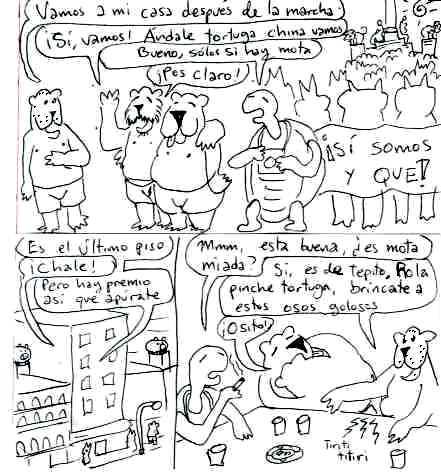 Vamos a mi casa después de la marcha.
¡Sí, vamos! Andale tortuga china vamos
Bueno, sólos si hay mota
¡Pos claro!
¡SÍ SOMOS
Y QUE!
Es el último piso
¡Chale!
Pero hay premio
así que apúrate
Mmm, está buena, ¿es mota
miada?
Si, es de tepito, Rola
pinche tortuga, bríncate a
estos osos golosos
¡Osito!
Tiriti
titiri